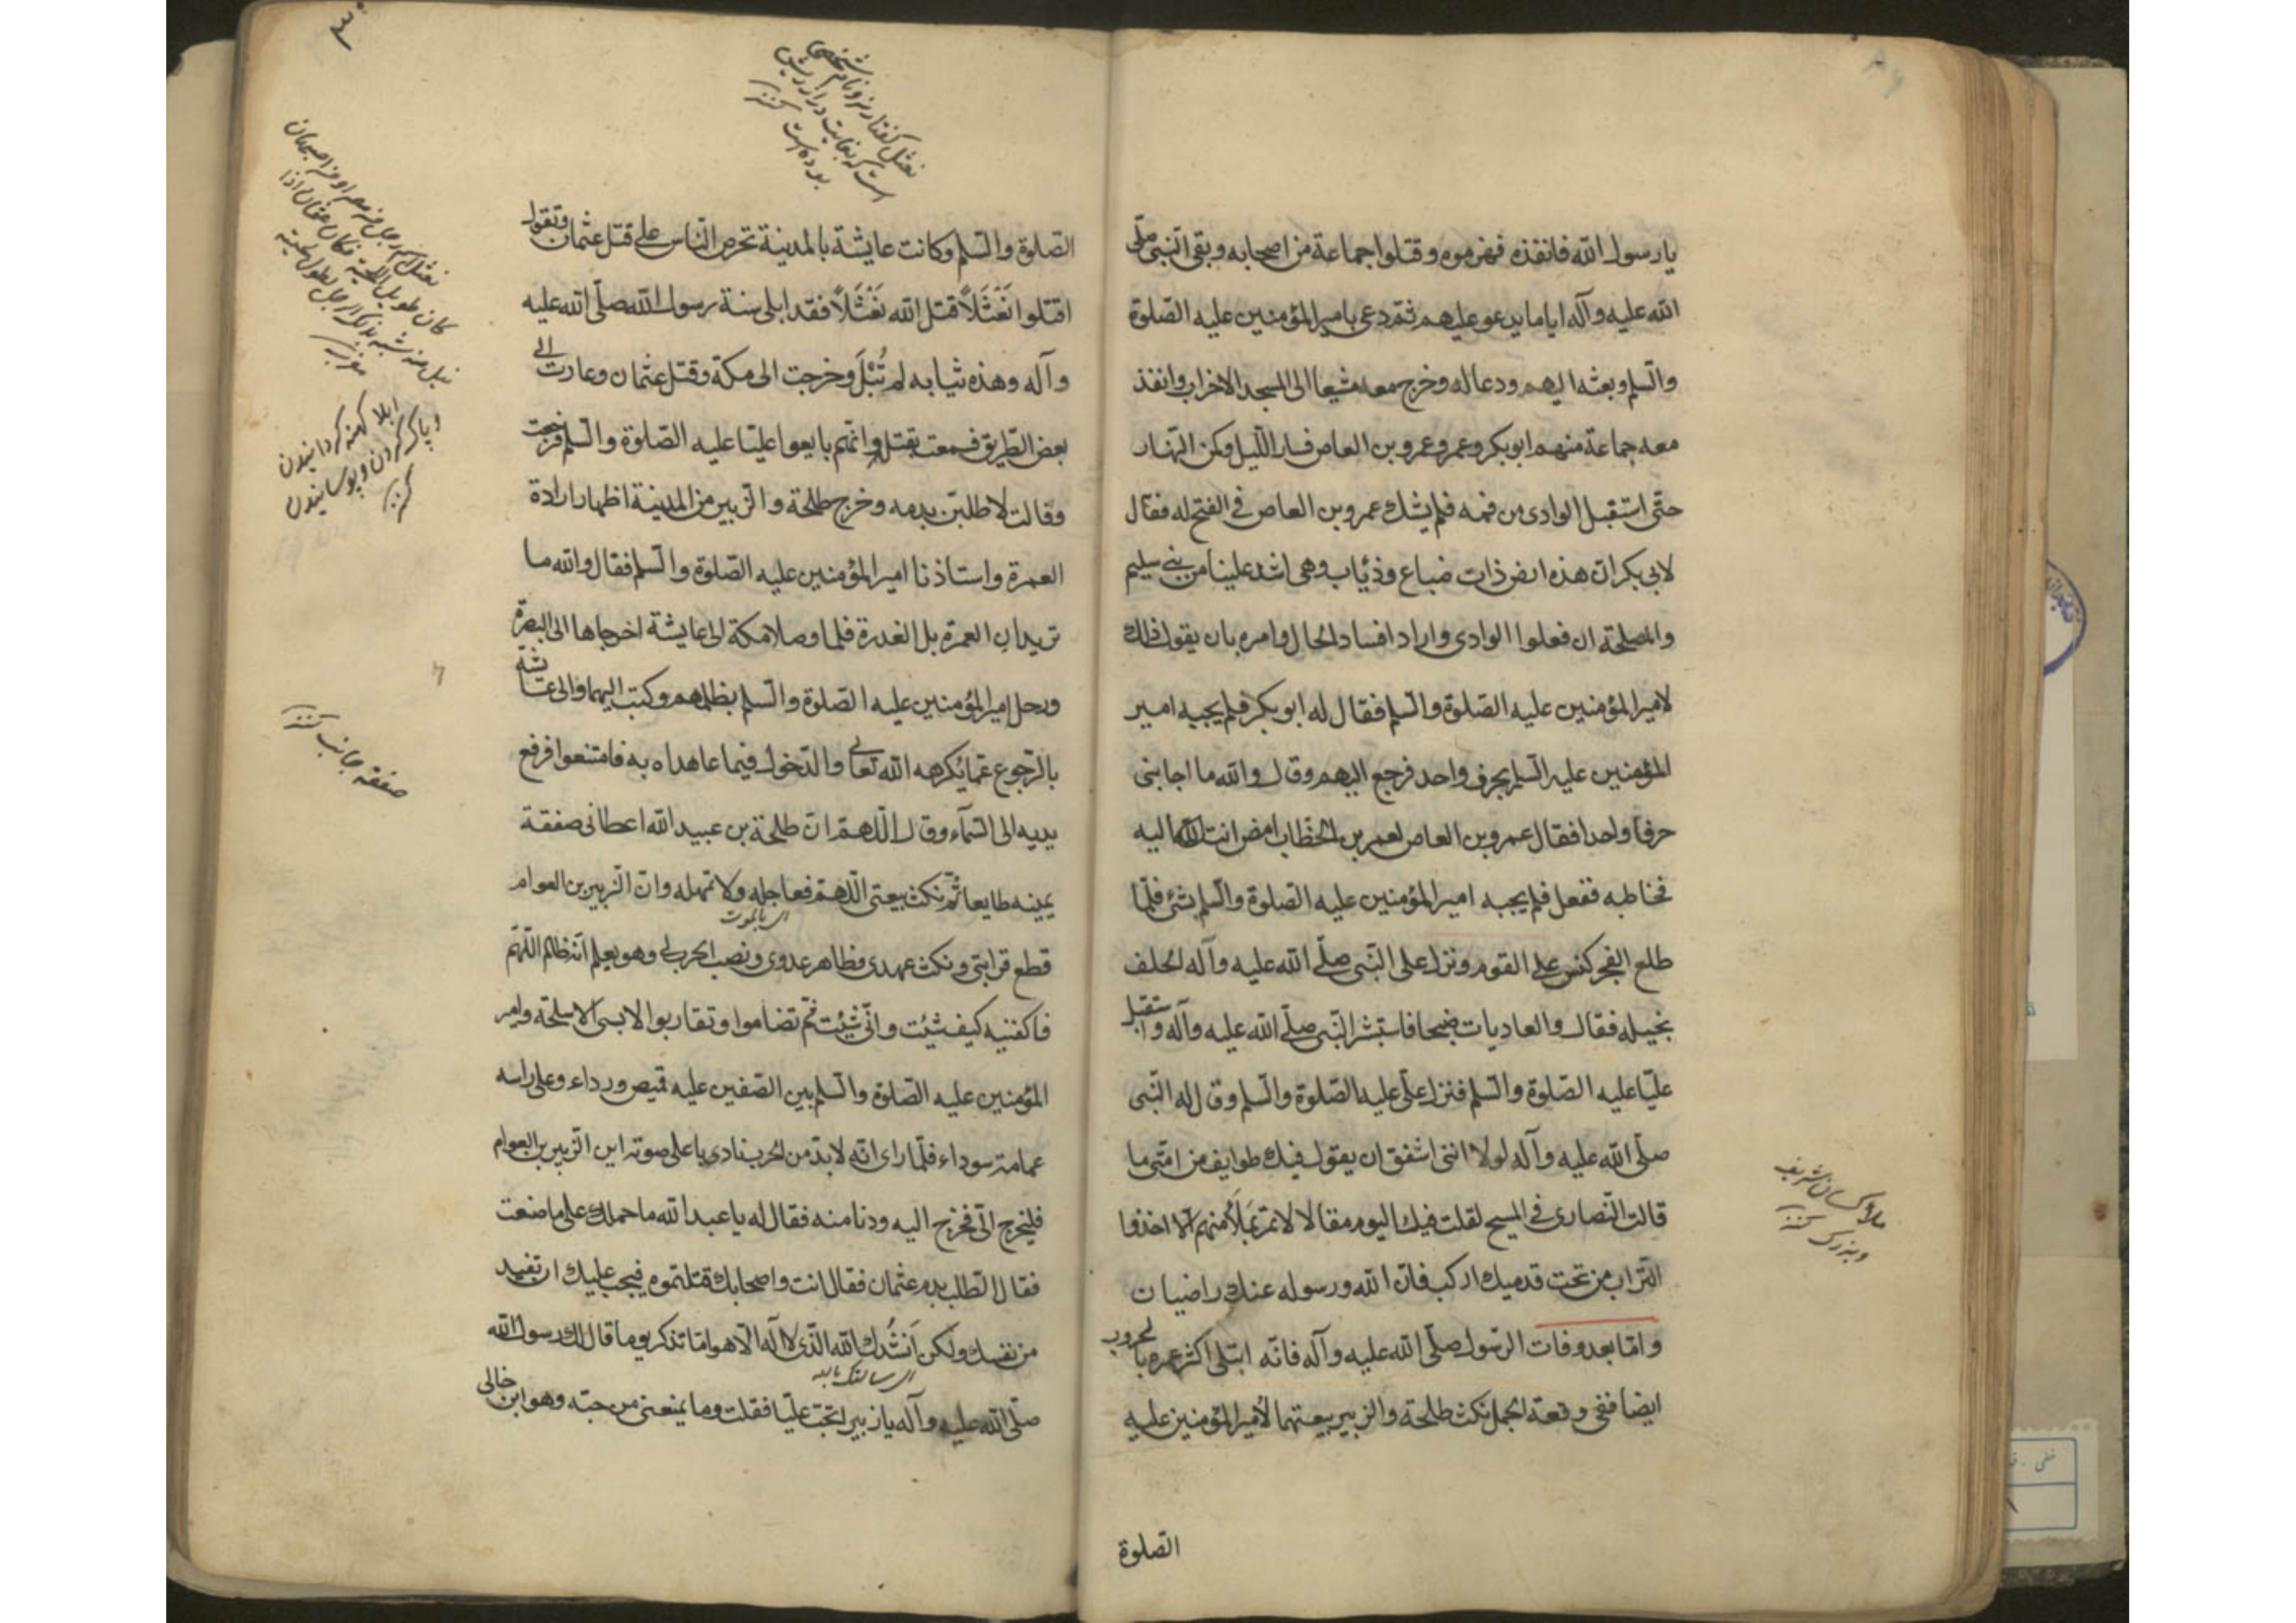 يا رسول الله فانفذه فهزموه وقتلوا جماعة من اصحابه وبقى النبى صلّى
الله عليه وآله اياما يدعو عليهم ثمّ دعى بامير المؤمنين عليه الصّلوة
والسّلم وبعثه اليهم ودعا له وخرج معه مشيعا الى المسجد الاخراب وانفذ
معه جماعة منهم ابوبكر وعمر وعمرو بن العاص فسار اللّيل وكمن النّهار
حتّى استقبل الوادى من فمه فلم يشك عمرو بن العاص فى الفتح له فقال
لابى بكر انّ هذه ارض ذات ضباع وذئاب وهى اشد علينا من بنى سليم
والمصلحة ان فعلوا الوادى واراد افساد الحال وامره بان يقول ذلك
لامير المؤمنين عليه الصّلوة والسّلم فقال له ابوبكر فلم يجبه امير
المؤمنين عليه السّلم بحرف واحد فرجع اليهم وقال والله ما اجابنى
حرفا واحدا فقال عمرو بن العاص لعمر بن الخطّاب امض انت اليه
فخاطبه ففعل فلم يجبه امير المؤمنين عليه الصّلوة والسّلم بشئ فلمّا
طلع الفجر كبس على القوم ونزل على النّبى صلّى الله عليه وآله الحلف
بخيله فقال والعاديات ضبحا فاستبشر النّبى صلّى الله عليه وآله واستقبل
عليّا عليه الصّلوة والسّلم فنزل علىّ عليه الصّلوة والسّلم وقال له النّبى
صلّى الله عليه وآله لولا اننى اشفق ان يقول فيك طوايف من امّتى ما
قالت النّصارى فى المسيح لقلت فيك اليوم مقالا لا تمر بملأ منهم الّا اخذوا
التّراب من تحت قدميك اركب فانّ الله ورسوله عنك راضيان
وامّا بعد وفات الرّسول صلّى الله عليه وآله فانّه ابتلى اكثر عمره بالحروب
ايضا ففى وقعة الجمل نكث طلحة والزبير بيعتهما لأمير المؤمنين عليه
الصّلوة
ملأ كسان شريف
وبزرك كنز
الصّلوة والسّلم وكانت عايشة بالمدينة تحرص النّاس على قتل عثمان وتقول
اقتلوا نَعْثَلاً قتل الله نَعْثَلاً فقد ابلى سنة رسول الله صلّى الله عليه
وآله وهذه ثيابه لم تُبْلَ وخرجت الى مكة وقتل عثمان وعادت الى
بعض الطّريق فسمعت بقتله وانّهم بايعوا عليّا عليه الصّلوة والسّلم فرجعت
وقالت لاطلبنّ بدمه وخرج طلحة والزّبير من المدينة اظهار ارادة
العمرة واستاذنا امير المؤمنين عليه الصّلوة والسّلم فقال والله ما
تريدان العمرة بل الغدرة فلما وصلا مكة الى عايشة اخرجاها الى البصرة
ورحل امير المؤمنين عليه الصّلوة والسّلم بطلبهم وكتب اليهما والى عايشة
بالرّجوع عمّا يكرهه الله تعالى والدّخول فيما عاهداه به فامتنعوا فرفع
يديه الى السّمآء وقال اللّهمّ انّ طلحة بن عبيد الله اعطانى صفقة
يمينه طايعا ثمّ نكث بيعتى اللّهمّ فعاجله ولا تمهله وانّ الزّبير بن العوام
اى بالموت
قطع قرابتى ونكث عهدى وظاهر عدوى ونصب الحرب لى وهو يعلم انّه ظالم اللّهمّ
فاكفنيه كيف شئت وانّى شئت ثمّ تضاموا وتقاربوا لابسى الاسلحة وامير
المؤمنين عليه الصّلوة والسّلم بين الصّفين عليه قميص ورداء وعلى راسه
عمامة سوداء فلمّا راى انّه لابدّ من الحرب نادى باعلى صوته اين الزّبير بن العوام
فليخرج الىّ فخرج اليه ودنا منه فقال له يا عبد الله ما حملك على ما صنعت
فقال الطّلب بدم عثمان فقال انت واصحابك قتلتموه فيجب عليك ان تقيد
من نفسك ولكن اَنشُدك الله الّذى لا اله الّا هو اما تذكر يوما قال لك رسول الله
اى سالتك بالله
صلّى الله عليه وآله يا زبير اتحبّ عليّا فقلت وما يمنعنى من حبّه وهو ابن خالى
نعثل كفتار نر ونام شخصى
است كه بغايت دراز ريش
بوده است كنز
كان طويل اللحية فكان عثمان اذا
نيل منه شبه بذلك الرجل لطول لحيته
ابلا كهنه كردانيدن
وپاك كردن وپوسانيدن
كنز
صفقه جانب كنز